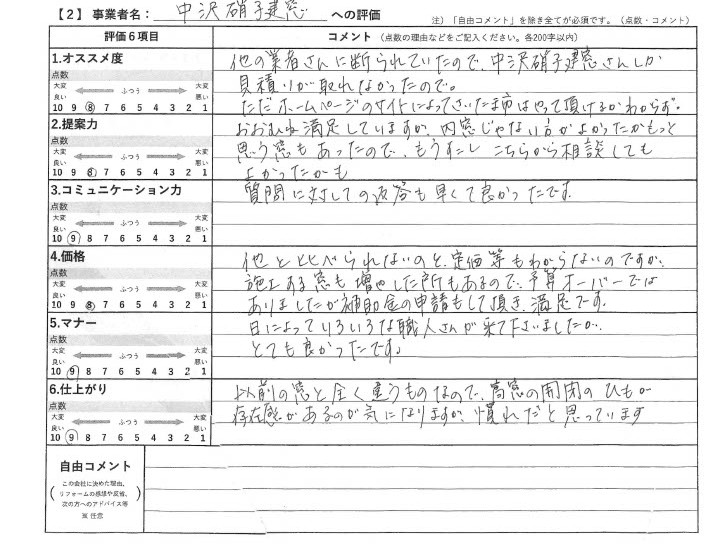 【2】 事業者名： 中沢硝子建窓 への評価
注）「自由コメント」を除き全てが必須です。（点数・コメント）
評価６項目
コメント（点数の理由などをご記入ください。各200字以内）
1.オススメ度
点数
大変良い ふつう 大変悪い
10 9 8 7 6 5 4 3 2 1
他の業者さんに断られていたので、中沢硝子建窓さんしか
見積りが取れなかったので。
ただホームページのサイトによってさいたま市はやって頂けるかわからず。
2.提案力
点数
大変良い ふつう 大変悪い
10 9 8 7 6 5 4 3 2 1
おおむね満足していますが、内窓じゃない方がよかったかもっと
思う窓もあったので、もう少し こちらから相談しても
よかったかも
3.コミュニケーション力
点数
大変良い ふつう 大変悪い
10 9 8 7 6 5 4 3 2 1
質問に対しての返答も早くて良かったです。
4.価格
点数
大変良い ふつう 大変悪い
10 9 8 7 6 5 4 3 2 1
他と比べられないのと、定価等もわからないのですが、
施工する窓も増やした所もあるので、予算オーバーでは
ありましたが補助金の申請もして頂き、満足です。
5.マナー
点数
大変良い ふつう 大変悪い
10 9 8 7 6 5 4 3 2 1
日によっていろいろな職人さんが来て下さいましたが、
とても良かったです。
6.仕上がり
点数
大変良い ふつう 大変悪い
10 9 8 7 6 5 4 3 2 1
以前の窓と全く違うものなので、高窓の開閉のひもが
存在感があるのが気になりますが、慣れだと思っています
自由コメント
（この会社に決めた理由、
リフォームの感想や反省、
次の方へのアドバイス等）
※ 任意